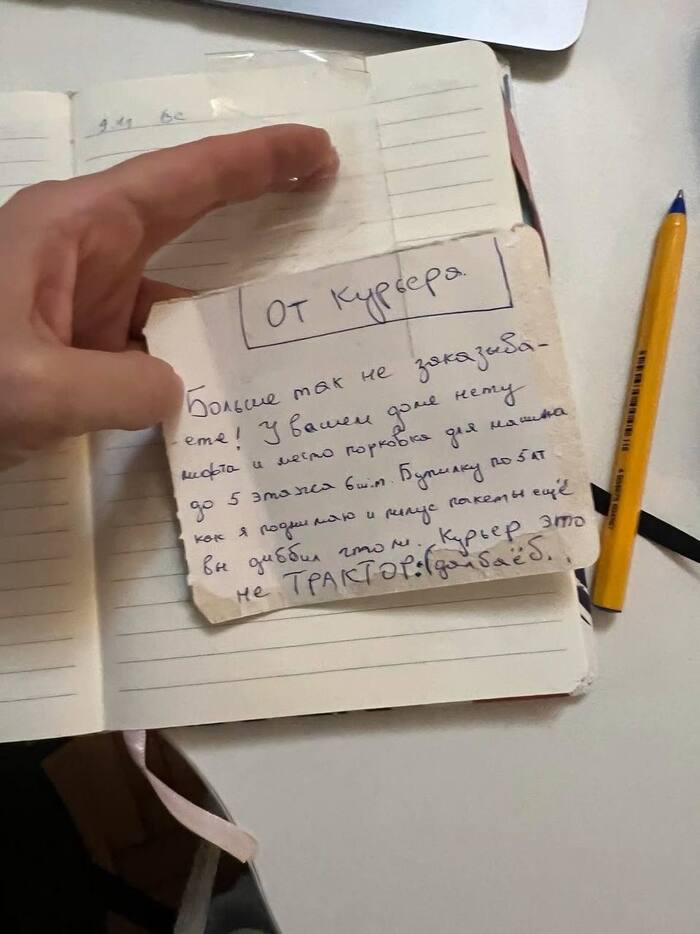 9.11 Вс
От Курьера.
Больше так не заказыва-
-ете! У вашем доме нету
лифта и место порковка для машина
до 5 этажа 6 ш.т. Бутилку по 5 лт
как я поднимаю и плюс пакеты ещё
вы диббил что ли. Курьер это
не ТРАКТОР:( далбаёб.